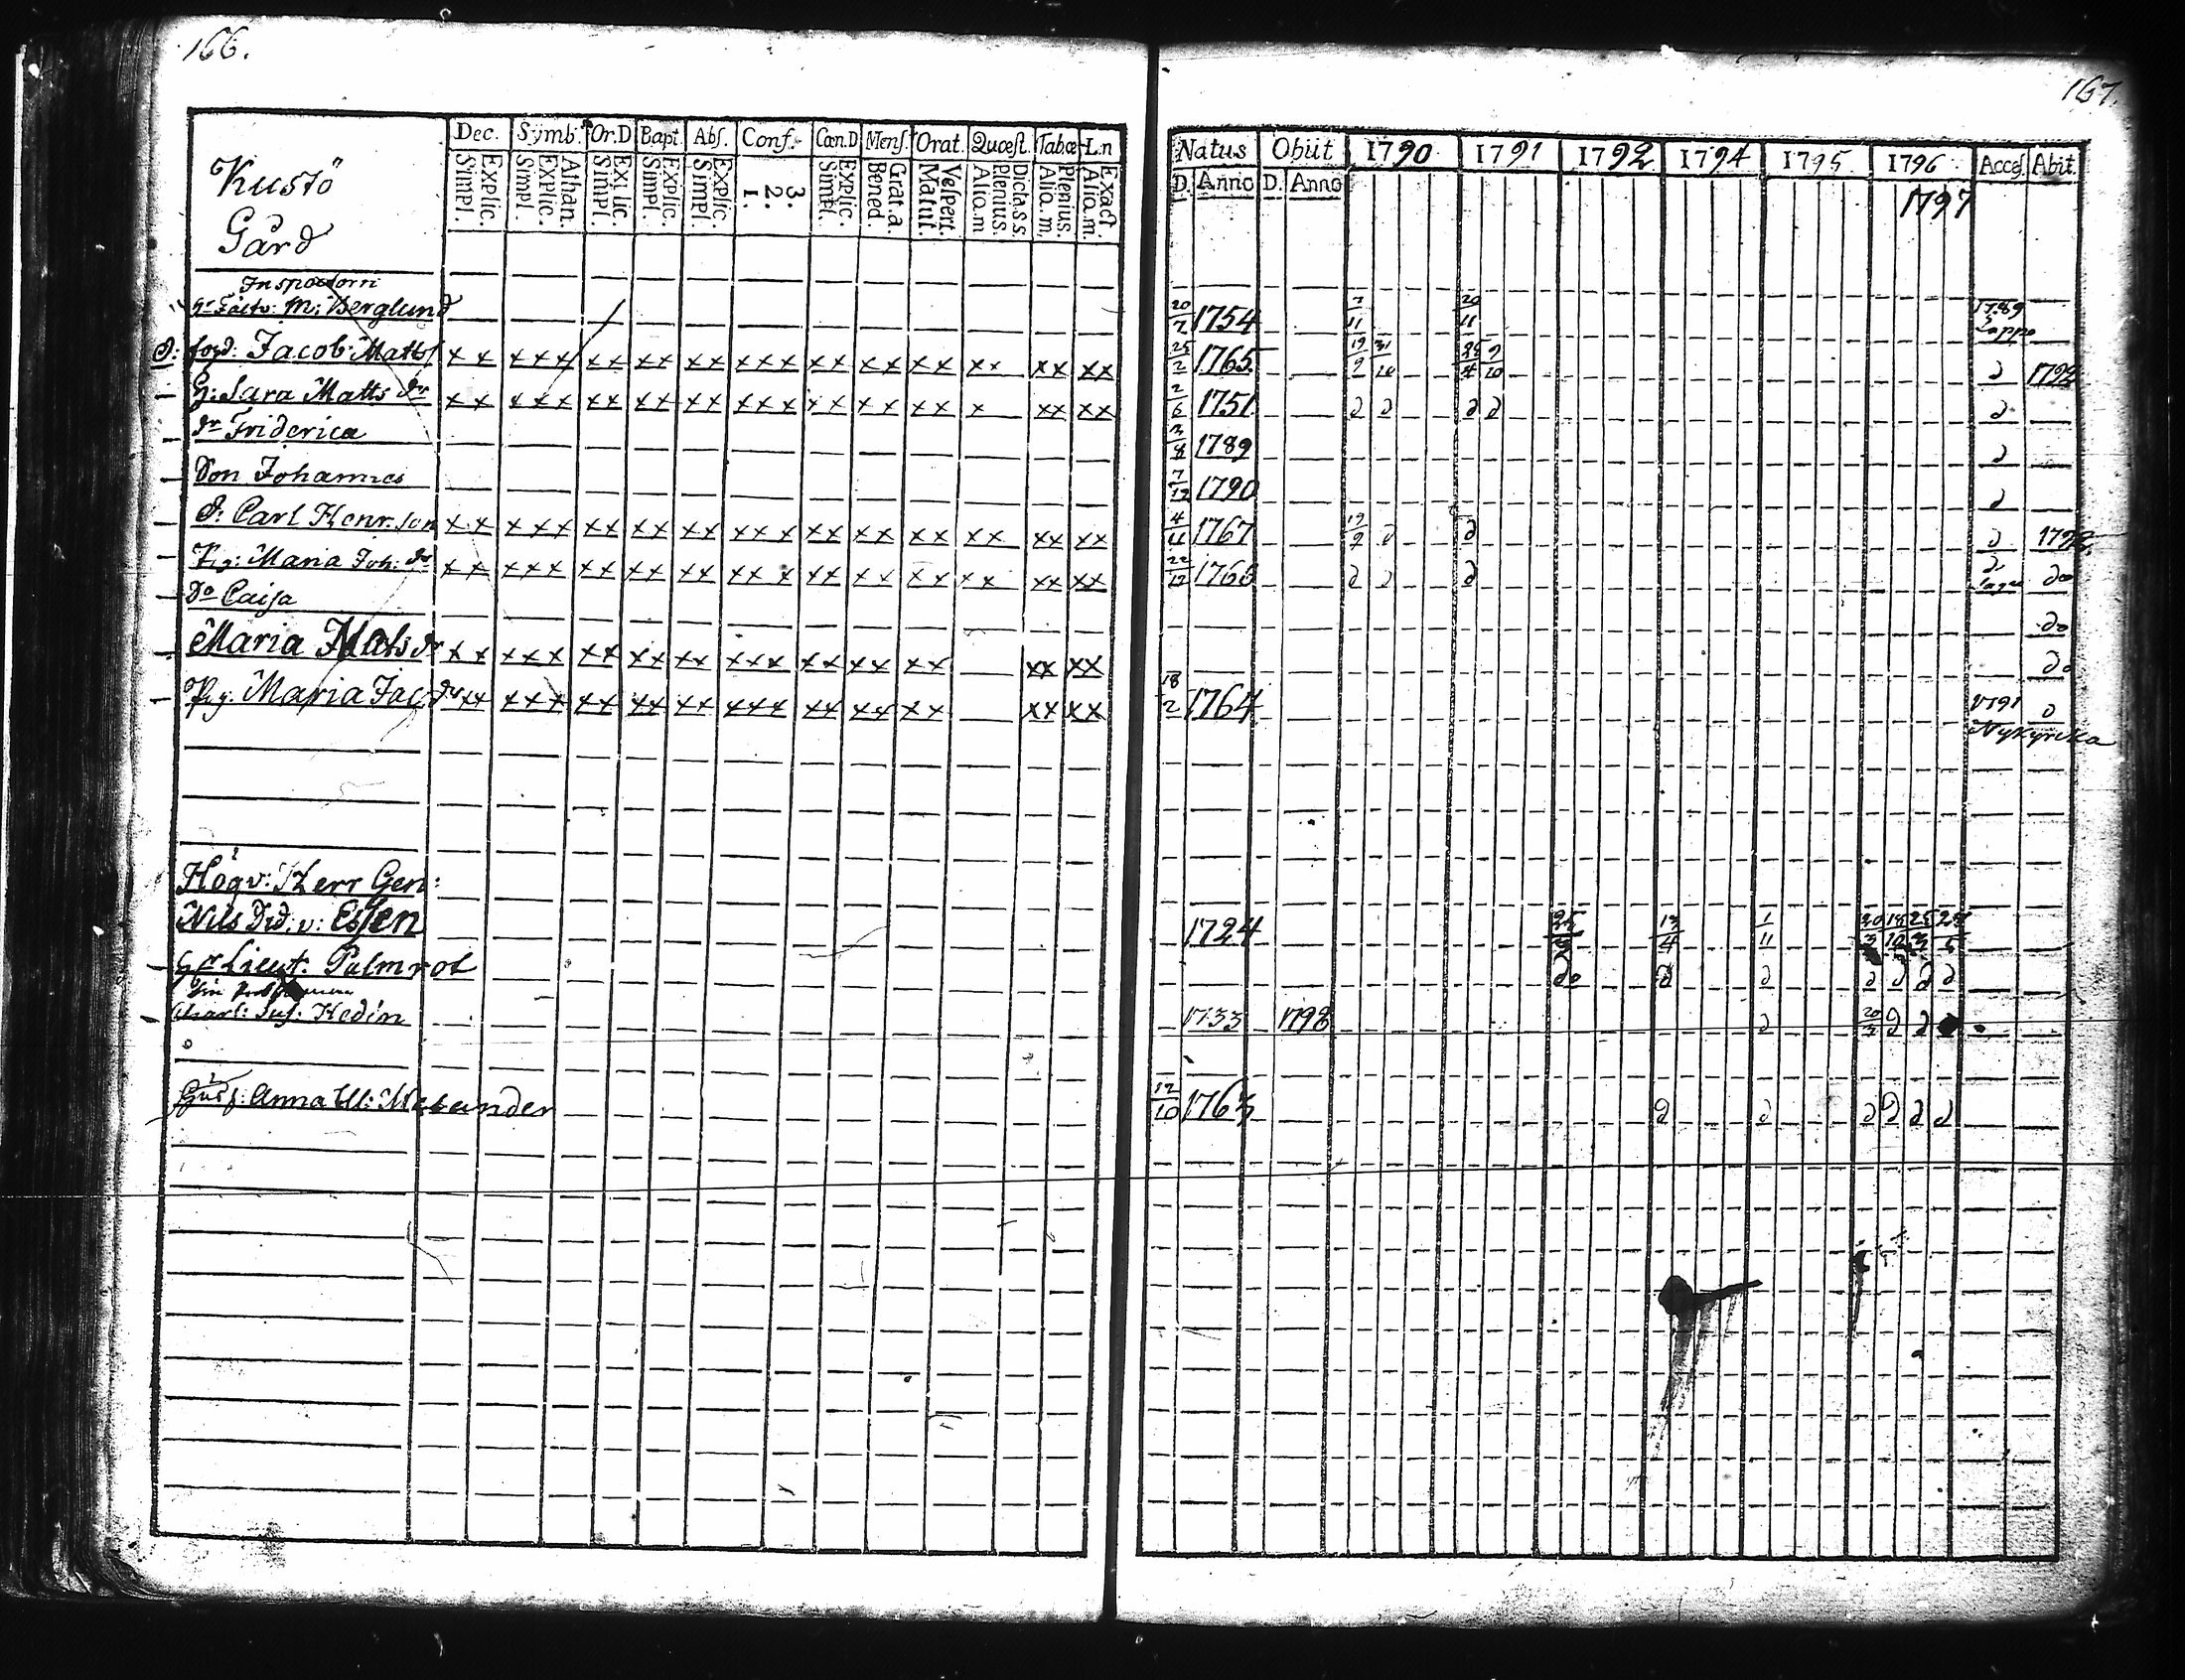 166.
Kustö
Gård
Dec. Symb. Or.D Bapt. Abſ. Conf. Cœn.D Menſ. Orat. Quœſt. Tabœ L.n
Explic. Simpl. Athan. Explic. Simpl. Explic. Simpl. Explic. Simpl. Explic. Simpl. 3. 2. 1. Explic. Simpl. Grat.a. Bened. Veſpert. Matut. Dicta.s.s. Plenius. Alio.m Plenius. Alio.m. Exact. Alio.m.
Inspectorn
Hr Facto: M: Berglund
fogd: Jacob: Matts
G: Sara Matts dr
dr Friderica
Son Johannes
d: Carl Henr. son
Pig: Maria Joh: dr
Do Caisa
Maria Mats dr
Pig. Maria Jac dr
Högv: Herr Gen:
Nils Did: v: Essen
Hr Lieut. Palmrot
Charl: Jus: Hedin
Husf: Anna Ul: Melander
167.
Natus Obiit 1790 1791 1792 1794 1795 1796 Acceſ. Abit.
D. Anno D. Anno
1797
20/7 1754 7/11 20/11 1789 Lappo
25/2 1765 19/9 31/10 25/4 9/10 d 1792
2/6 1751 d d d d d
3/8 1789 d
7/12 1790 d
4/11 1767 19/9 d d d 1792
22/12 176 d d d d do
do
do
18/2 1764 1791 d
Nykyrcka
1724 25/3 13/4 1/11 20/3 18/10 25/3 25/5
do d d d d d d
1733 1798 d 20/3 d d
12/10 1763 d d d d d d